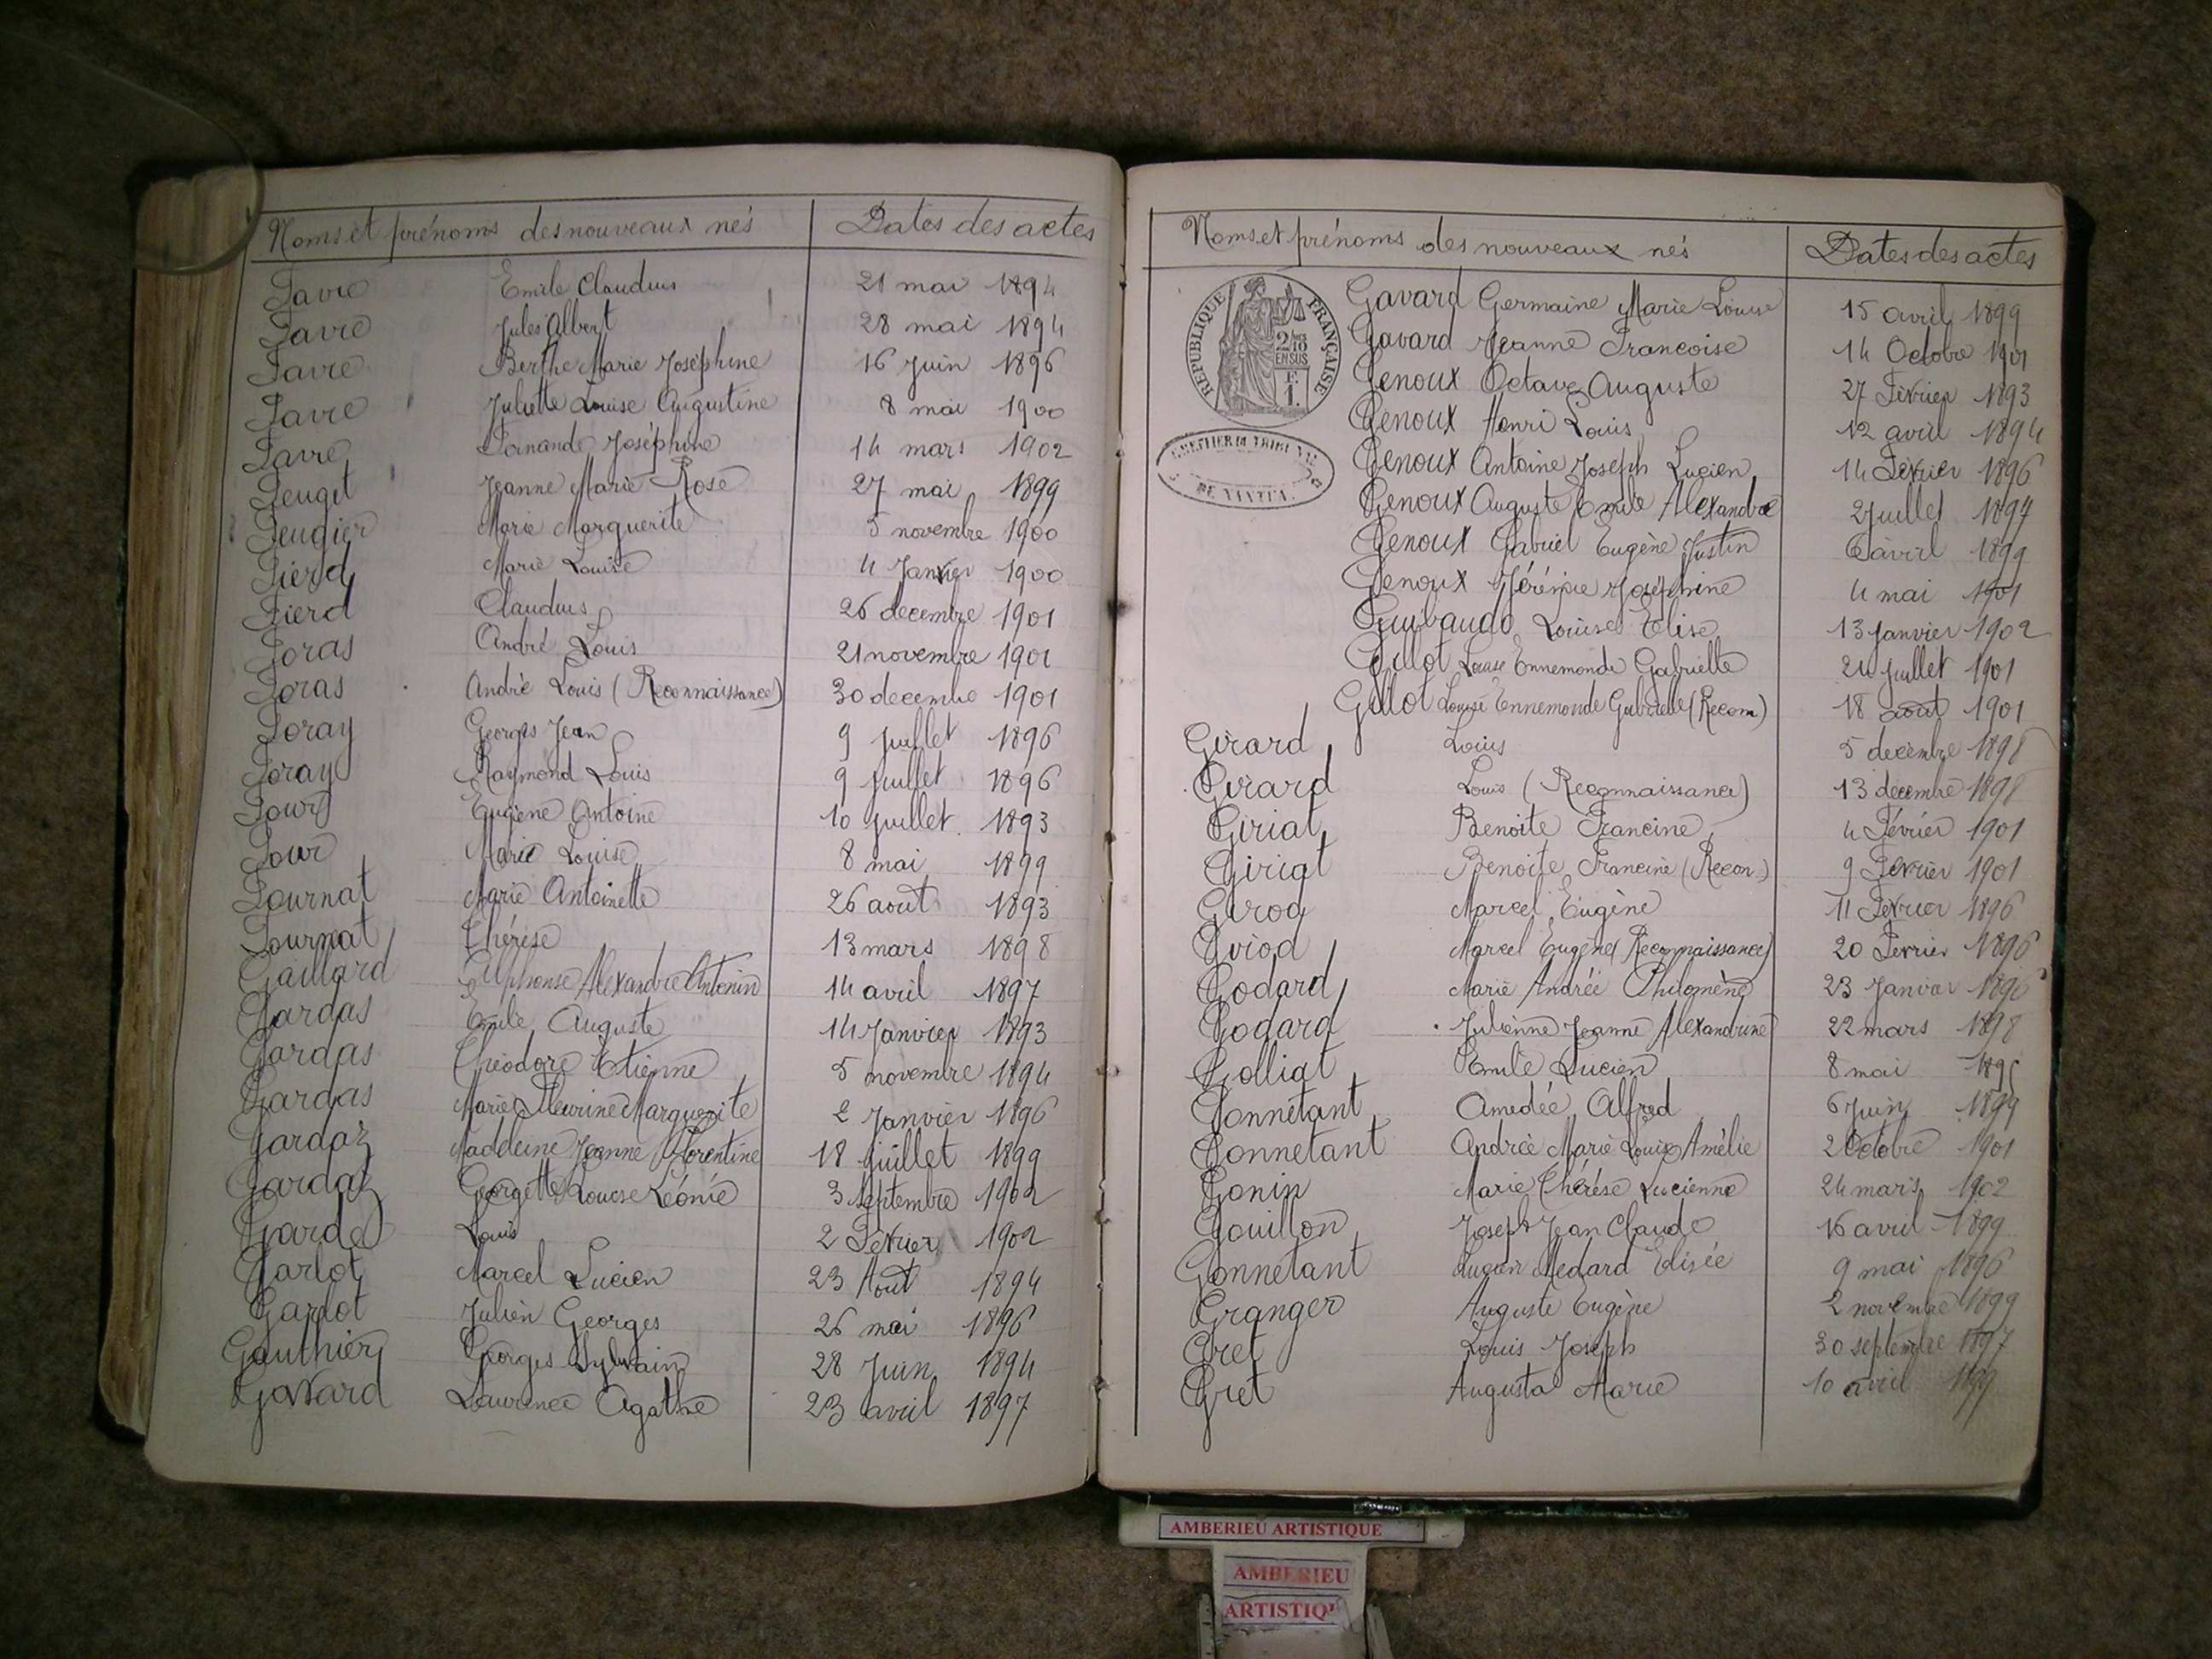 Noms et prénoms des nouveaux nés Dates des actes
Favre Emile Claudius 21 mai 1894
Favre Jules Albert 28 mai 1894
Favre Berthe Marie Joséphine 16 Juin 1896
Favre Juliette Louise Augustine 8 mai 1900
Favre Fernande Joséphine 14 mars 1902
Feuget Jeanne Marie Rose 27 mai 1899
Feugier Marie Marguerite 5 novembre 1900
Fierd Marie Louise 4 Janvier 1900
Fierd Claudius 26 decembre 1901
Foras André Louis 21 novembre 1901
Foras André Louis (Reconnaissance) 30 decembre 1901
Foray Georges Jean 9 Juillet 1896
Foray Raymond Louis 9 Juillet 1896
Four Eugène Antoine 10 Juillet 1893
Four Marie Louise 8 mai 1899
Fournat Marie Antoinette 26 août 1893
Fournat Thérèse 13 mars 1898
Gaillard Alphonse Alexandre Antonin 14 avril 1897
Gardas Emile Auguste 14 Janvier 1893
Gardas Théodore Etienne 5 novembre 1894
Gardas Marie Fleurine Marguerite 2 Janvier 1896
Gardaz Madeleine Jeanne Florentine 18 Juillet 1899
Gardaz Georgette Louise Léonie 3 Septembre 1902
Garde Louis 2 Février 1902
Garlot Marcel Lucien 23 Août 1894
Garlot Julien Georges 26 mai 1896
Gauthier Georges Sylvain 28 Juin 1894
Gavard Laurence Agathe 23 avril 1897
Noms et prénoms des nouveaux nés Dates des actes
RÉPUBLIQUE FRANÇAISE
2/10 EN SUS
F. 1.
DE NANTUA
Gavard Germaine Marie Louise 15 avril 1899
Gavard Jeanne Francoise 14 Octobre 1901
Genoux Octave Auguste 27 Février 1893
Genoux Henri Louis 12 avril 1894
Genoux Antoine Joseph Lucien 14 Février 1896
Genoux Auguste Emile Alexandre 2 Juillet 1897
Genoux Gabriel Eugène Justin 6 avril 1899
Genoux Joséphine 4 mai 1901
Guibaudo Louise Elise 13 Janvier 1902
Gillot Louise Ennemonde Gabrielle 24 Juillet 1901
Gillot Louise Ennemonde Gabrielle (Recon) 18 août 1901
Girard Louis 5 decembre 1898
Girard Louis (Reconnaissance) 13 decembre 1898
Giriat Benoite Francine 4 Février 1901
Giriat Benoite Francine (Recon.) 9 Fevrier 1901
Girod Marcel Eugène 11 Février 1896
Girod Marcel Eugène (Reconnaissance) 20 Fevrier 1896
Godard Marie Andrée Philomène 23 Janvier 1896
Godard Julienne Jeanne Alexandrine 22 mars 1898
Golliat Emile Lucien 8 mai
Gonnetant Amedée Alfred 6 Juin 1899
Gonnetant Andrée Marie Louise Amélie 2 Octobre 1901
Gonin Marie Thérèse Lucienne 24 mars 1902
Gouillon Joseph Jean Claude 16 avril 1899
Gonnetant Lucien Medard Elisée 9 mai 1896
Granger Auguste Eugène 2 novembre 1899
Gret Louis Joseph 30 septembre 1897
Gret Augusta Marie 10 avril 1899
AMBERIEU ARTISTIQUE
AMBERIEU
ARTISTIQ